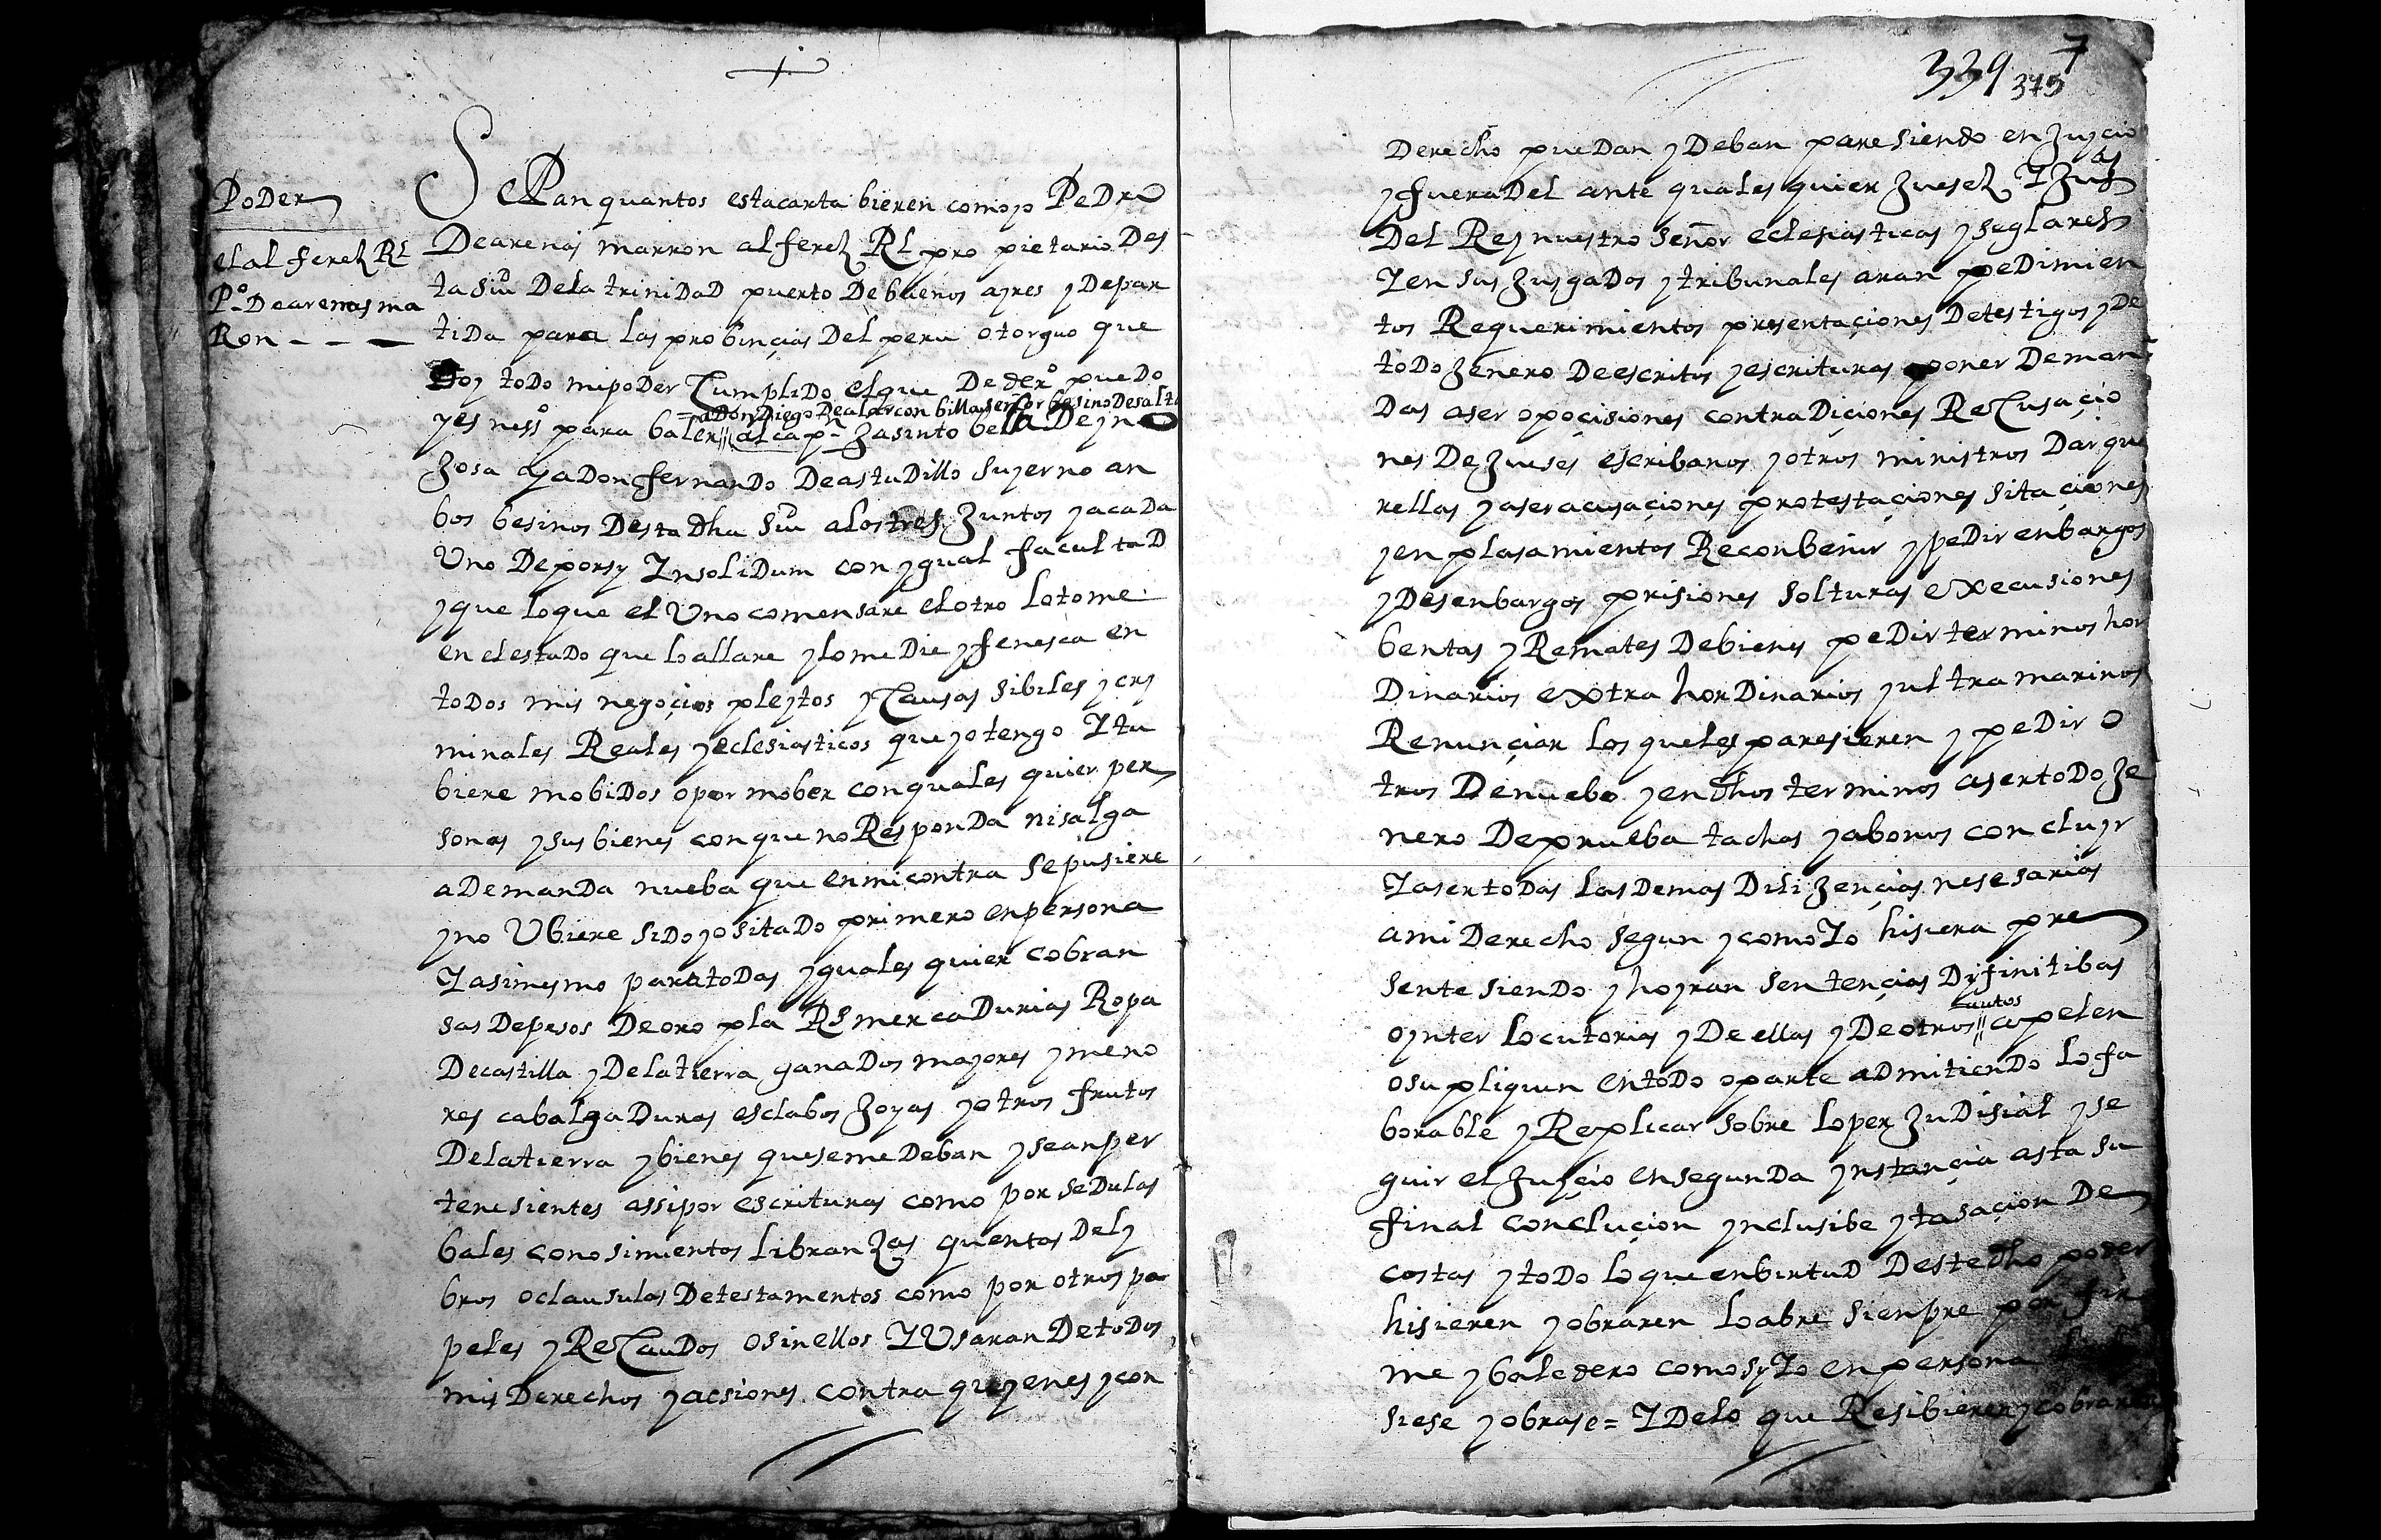 Poder
el alferez Rl
Po De arenas ma
Ron - - -
SePan quantos esta carta bieren como yo Pedro
De arenas marron alferez Rl propietario Des
ta siu De la trinidad puerto De buenos ayres y De par
tida para las probinçias Del peru otorguo que
Doy todo mi poder Cumplido el que De dero puedo
= a Don Diego De alarcon billaseñor besino De salta
y es nesso para baler // al capn Jasinto bela De yno
Josa y a Don fernando De astudillo su yerno an
bos besinos Desta dha siu a los tres Juntos y a cada
Uno De por sy Insolidum con ygual facultad
y que lo que el Uno comensare el otro lo tome
en el estado que lo allare y lo medie y fenesca en
todos mis negoçios pleytos y Causas sibiles y cry
minales Reales y eclesiasticos que yo tengo Y tu
biere mobidos o por mober con quales quier per
sonas y sus bienes con que no Responda ni salga
a Demanda nueba que en mi contra se pusiere
y no Ubiere sido yo sitado primero en persona
Y asimesmo para todas y quales quier cobran
sas De pesos De oro pla Rs mercadurias Ropa
De castilla y De la tierra ganados mayores y meno
res cabalgaduras esclabos Joyas y otros frutos
De la tierra y bienes que se me Deban y sean per
tenesientes assi por escrituras como por sedulas
bales conosimientos libranzas quentas De ly
bros o clausulas De testamentos como por otros pa
peles y ResCaudos o sin ellos Y Usaran De todos
mis Derechos y acsiones contra quyenes y con
339 7
375
Derecho puedan y Deban paresiendo en Juyçio
y fuera Del ante quales quier Juesez Y Justas
Del Rey nuestro señor eclesiasticas y seglares
Y en sus Juzgados y tribunales aran pedimien
tos Requerimientos presentaçiones De testigos y De
todo Jenero De escritos y escrituras poner Deman
Das aser opoçisiones contradiçiones ReCusaçio
nes De Jueses escribanos y otros ministros Dar que
rellas y aser acusaçiones protestaçiones sitaçiones
y enplasamientos Reconbenir y pedir enbargos
y Desenbargos prisiones solturas execusiones
bentas y Remates De bienes pedir terminos hor
Dinarios extra hordinarios y ultramarinos
Renunçiar los que les paresieren y pedir o
tros De nuebo y en dhos terminos aser todo Je
nero De prueba tachas y abonos concluyr
Y aser todas las Demas Dilijençias nesesarias
a mi Derecho segun y como Yo hisiera pre
sente siendo y hoyran sentençias Difinitibas
autos
o ynterlocutorias y De ellas y De otros // apelen
o supliquen en todo o parte admitiendo lo fa
borable y Replicar sobre lo perjudisial y se
guir el Juyçio en segunda ynstançia asta su
final concluçion ynclusibe y tasaçion De
costas y todo lo que en birtud Deste dho poder
hisieren y obraren lo abre sienpre por fir
me y baledero como sy Yo en persona
siese y obrase = Y De lo que Resibieren y cobraren